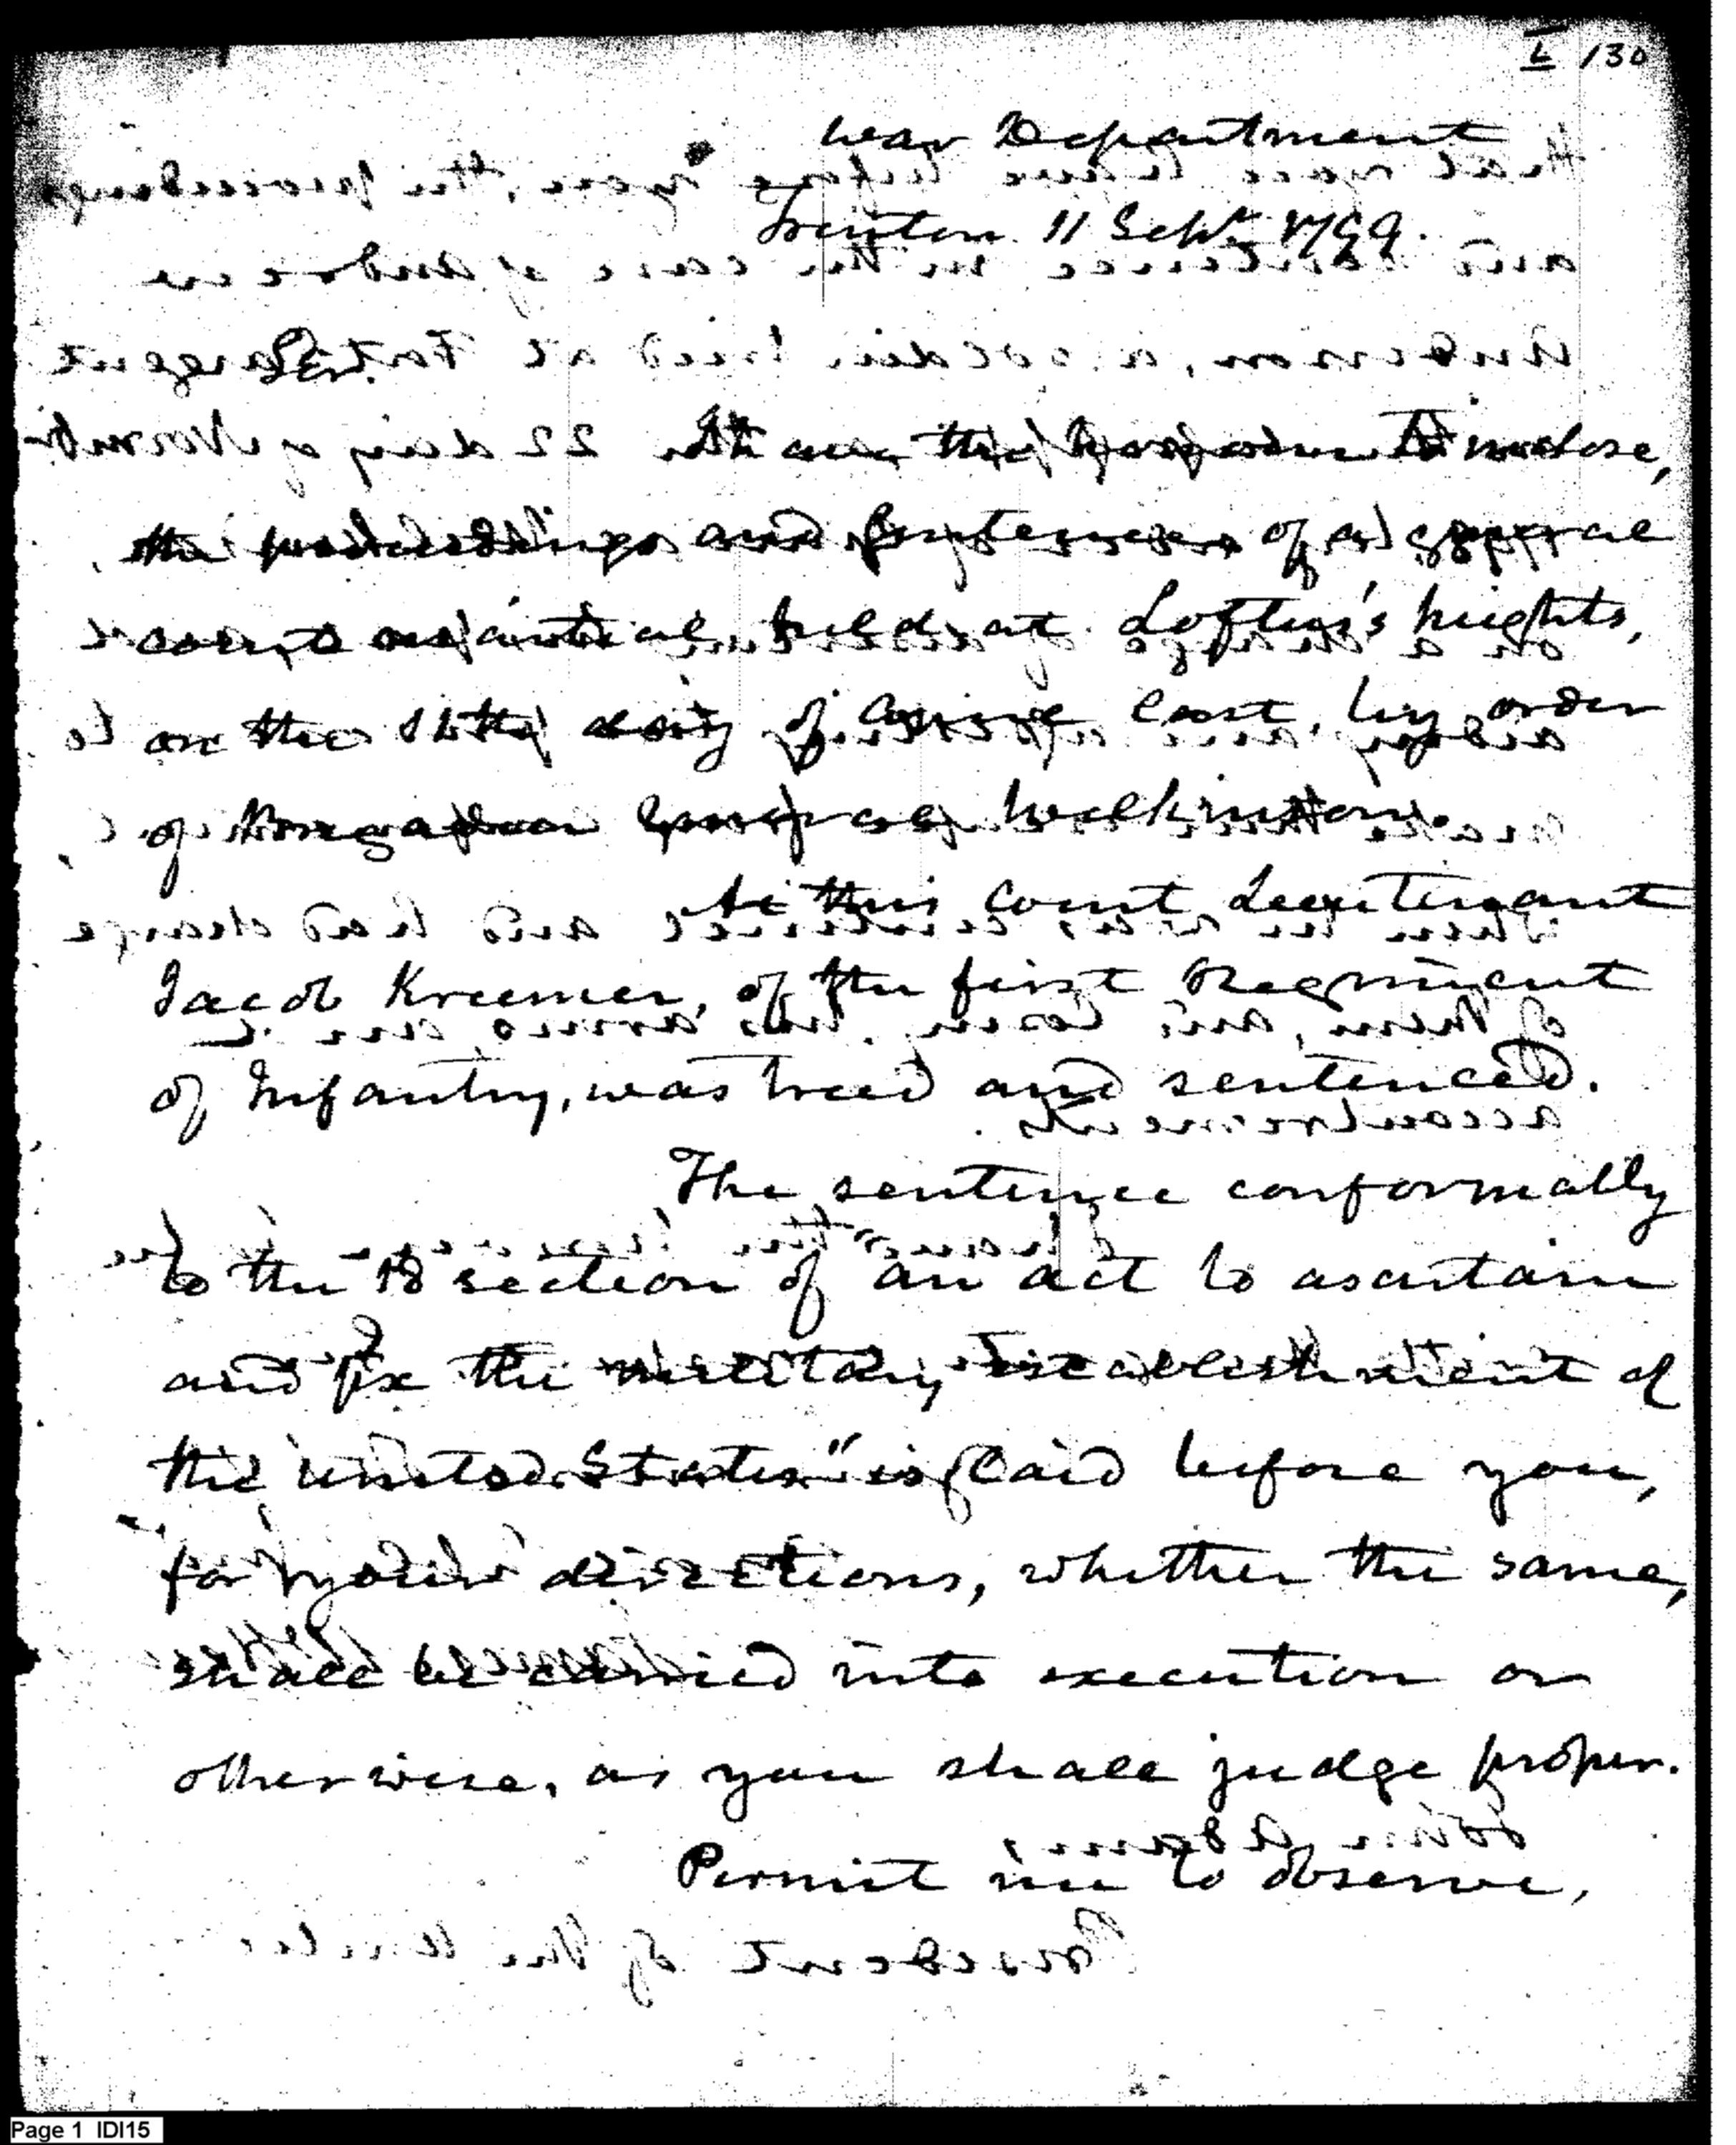 L 130
War Department
Trenton 11 Sept. 1799.
Sir, I have the honor to inclose,
the proceedings and sentences of a general
court martial, held at Loftus's heights,
on the day of last, by order
of Brigadier General Wilkinson.
At this court Lieutenant
Jacob Kreemer, of the first Regiment
of Infantry, was tried and sentenced.
The sentence conformally
to the 18 section of "an act to ascertain
and fix the military establishment of
the united States" is laid before you,
for your directions, whether the same,
shall be carried into execution or
otherwise, as you shall judge proper.
Permit me to observe,
Page 1 IDI15